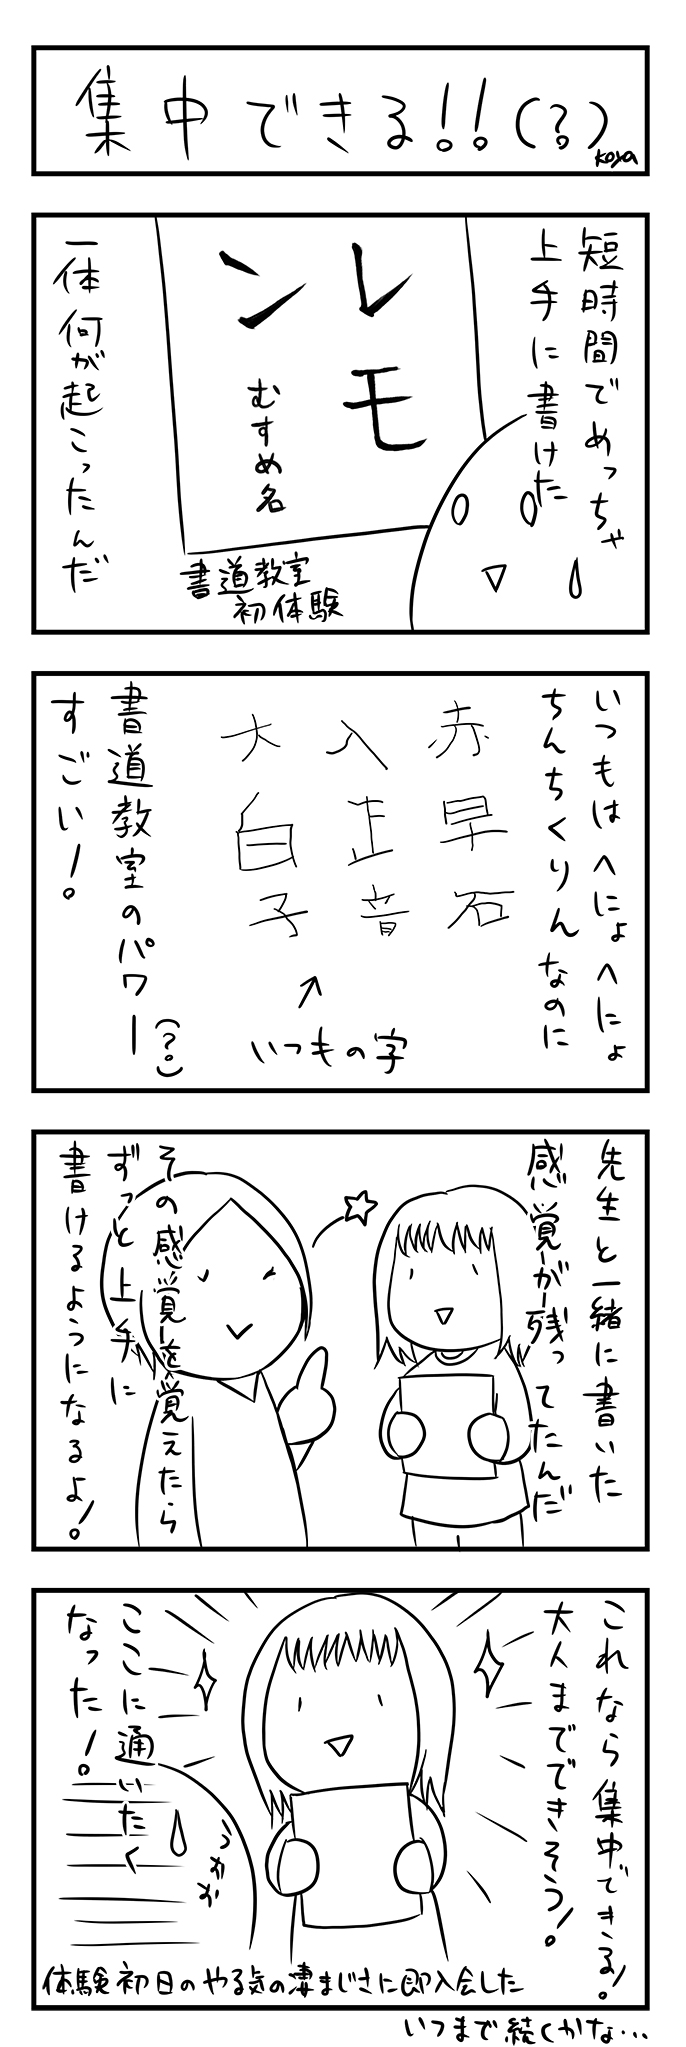 集中できる!!(?)
koya
短時間でめっちゃ
上手に書けた
レモ
ン
むすめ名
書道教室
初体験
一体何が起こったんだ
いつもはへにょへにょ
ちんちくりんなのに
赤早石
入正音
大白子
↑
いつもの字
書道教室のパワー(?)
すごい!
先生と一緒に書いた
感覚が残ってたんだ
その感覚を覚えたら
ずっと上手に
書けるようになるよ!
これなら集中できる!
大人までできそう!
ここに通いたく
なった!
うおお
体験初日のやる気の凄まじさに即入会した
いつまで続くかな…